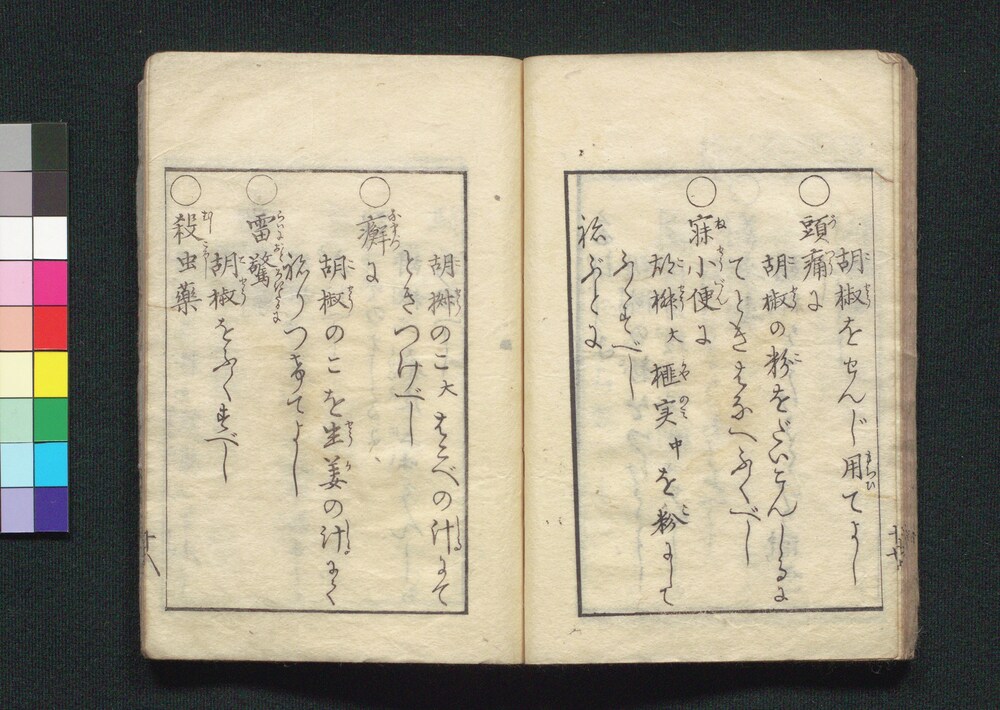 胡椒をせんじ用てよし
頭痛に
胡椒の粉をだいこんしるに
てときはなへふくべし
寐小便に
胡椒大 榧実中を粉にして
ふくすべし
ねぶとに
十七
胡椒のこ大 はこべの汁にて
ときつけべし
癬に
胡椒のこを生姜の汁にて
ねりつけてよし
雷驚に
胡椒をふくすべし
殺虫薬
十八